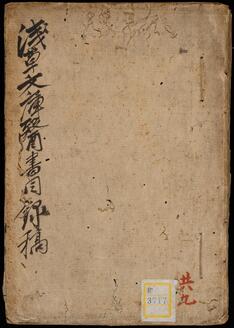 浅草文書目録稿
共九
3717